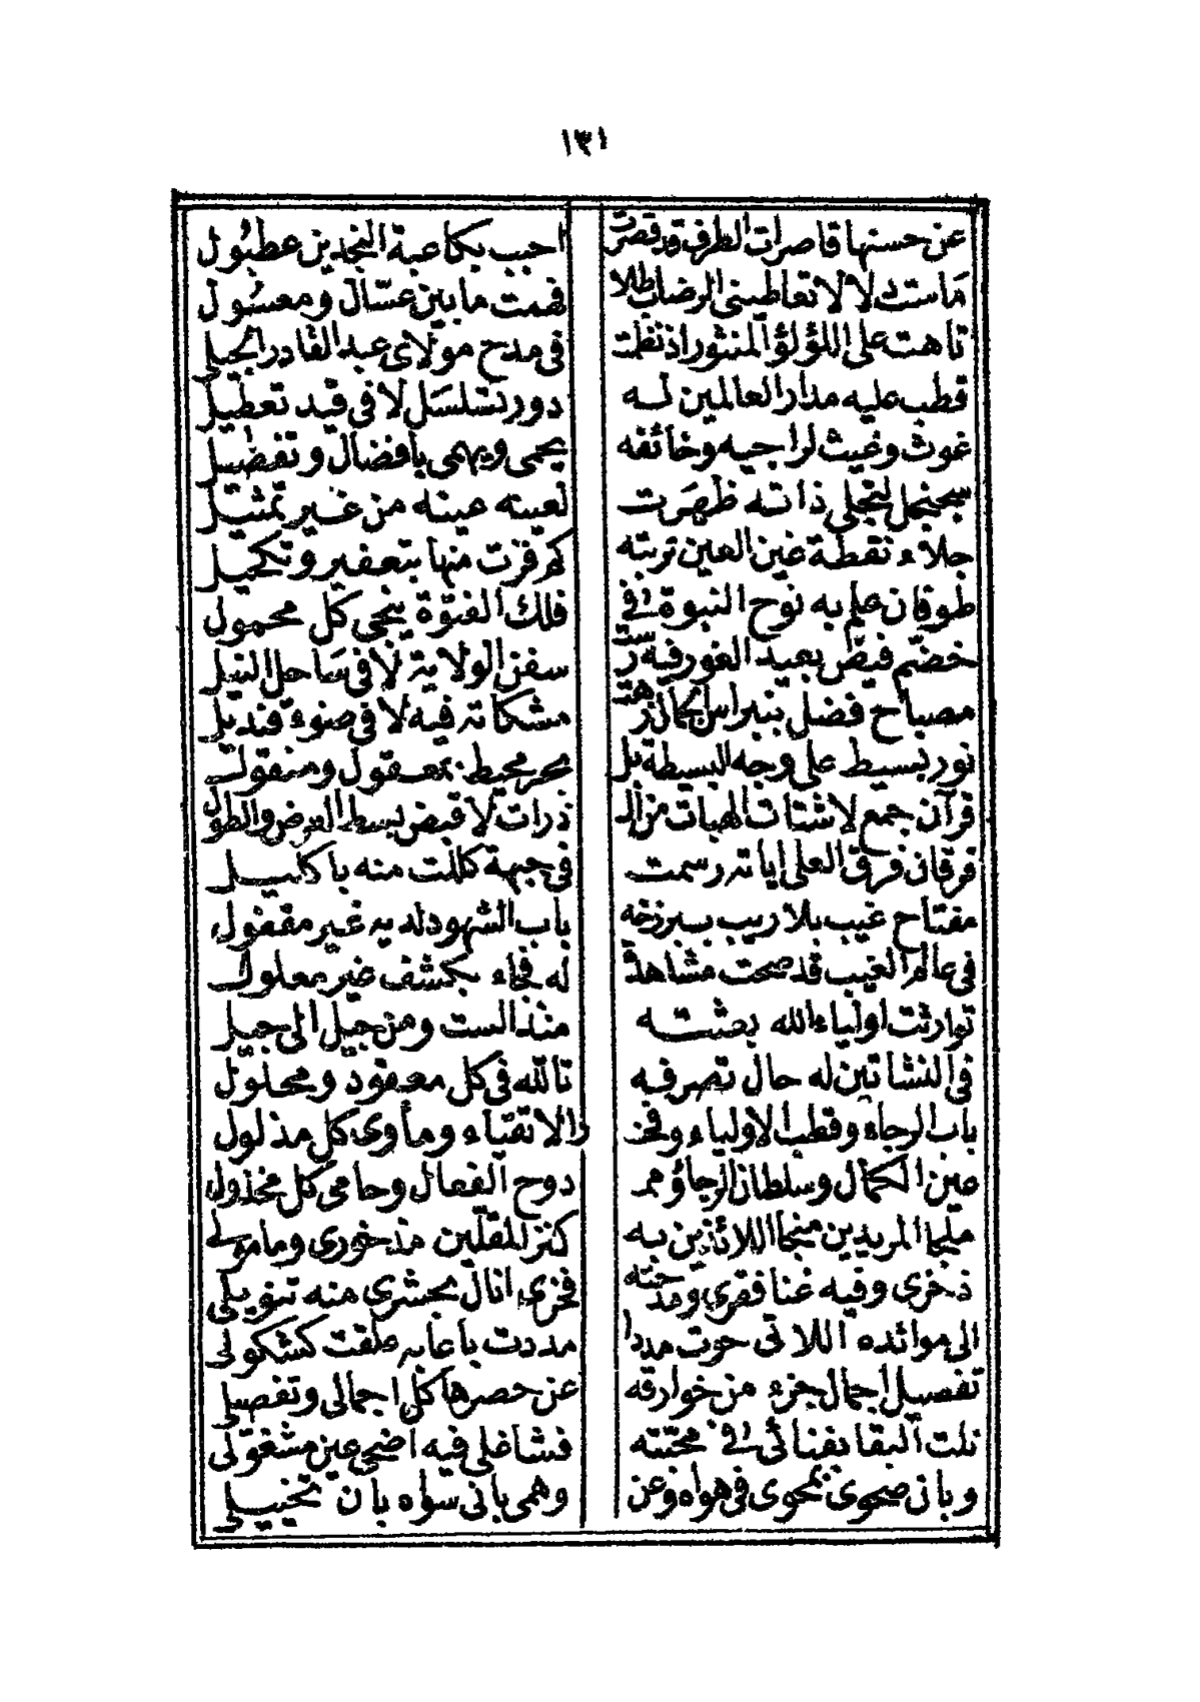 ١٣١
عن حسنها قاصرات الطرف قد قصرت احبب بكاعبة النجدين عطبول
ماستك لا لا تعاطينى الرضاب طلا فهمت ما بين عسّال ومعسول
تاهت على اللؤلؤ المنثور اذ نظمت فى مدح مولاى عبد القادر الجيلى
قطب عليه مدار العالمين له دور تسلسل لا فى قيد تعطيل
غوث وغيث لراجيه وخائفه يحمى ويهمى بافضال وتفضيل
سجنجل لتجلى ذاته ظهرت لعينه عينه من غير تمثيل
جلاء نقطة غين العين تربته كم فزت منها بتعفير وتكحيل
طوفان علم به نوح النبوة فى فلك الفتوة ينجى كل محمول
خضم فيض بعيد الغور فيه رست سفن الولاية لا فى ساحل النيل
مصباح فضل بنبراس الجمال زهت مشكاته فيه لا فى ضوء قنديل
نور بسيط على وجه البسيطة بل بحر محيط بمعقول ومنقول
قرآن جمع لاشتات الهبات من الـ ذرات لا قبض لبسط العرض والطول
فرقان فرق العلى اياته رسمت فى جبهة كللت منه باكليل
مفتاح غيب بلا ريب بسبرزخه باب الشهود لديه غير مقفول
فى عالم الغيب قد صحت مشاهدة له فجاء بكشف غير معلول
توارثت اولياء الله بعثته منذ الست ومن جيل الى جيل
فى النشاتين له حال تصرفه تالله فى كل معقود ومحلول
باب الرجاء وقطب الاولياء وفخـ ـر الاتقياء ومأوى كل مذلول
عين الكمال وسلطان الرجا وممـ دوح الفعال وحامى كل مخذول
ملجا المريدين منجا اللائذين به كنز المقلين مذخورى ومامولى
ذخرى وفيه غنا فقرى ومدحته فخرى انال بحشرى منه تنويلى
الى موائده اللاتى حوت مددا مددت باعا به علقت كشكولى
تفصيل اجمال جزء من خوارقه عن حصرها كل اجمالى وتفصيلى
نلت البقا بفنائى فى محبته فشاغلى فيه اضحى عين مشغولى
وبان صحوى بمحوى فى هواه وعن وهمى بانى سواه بان تخييلى